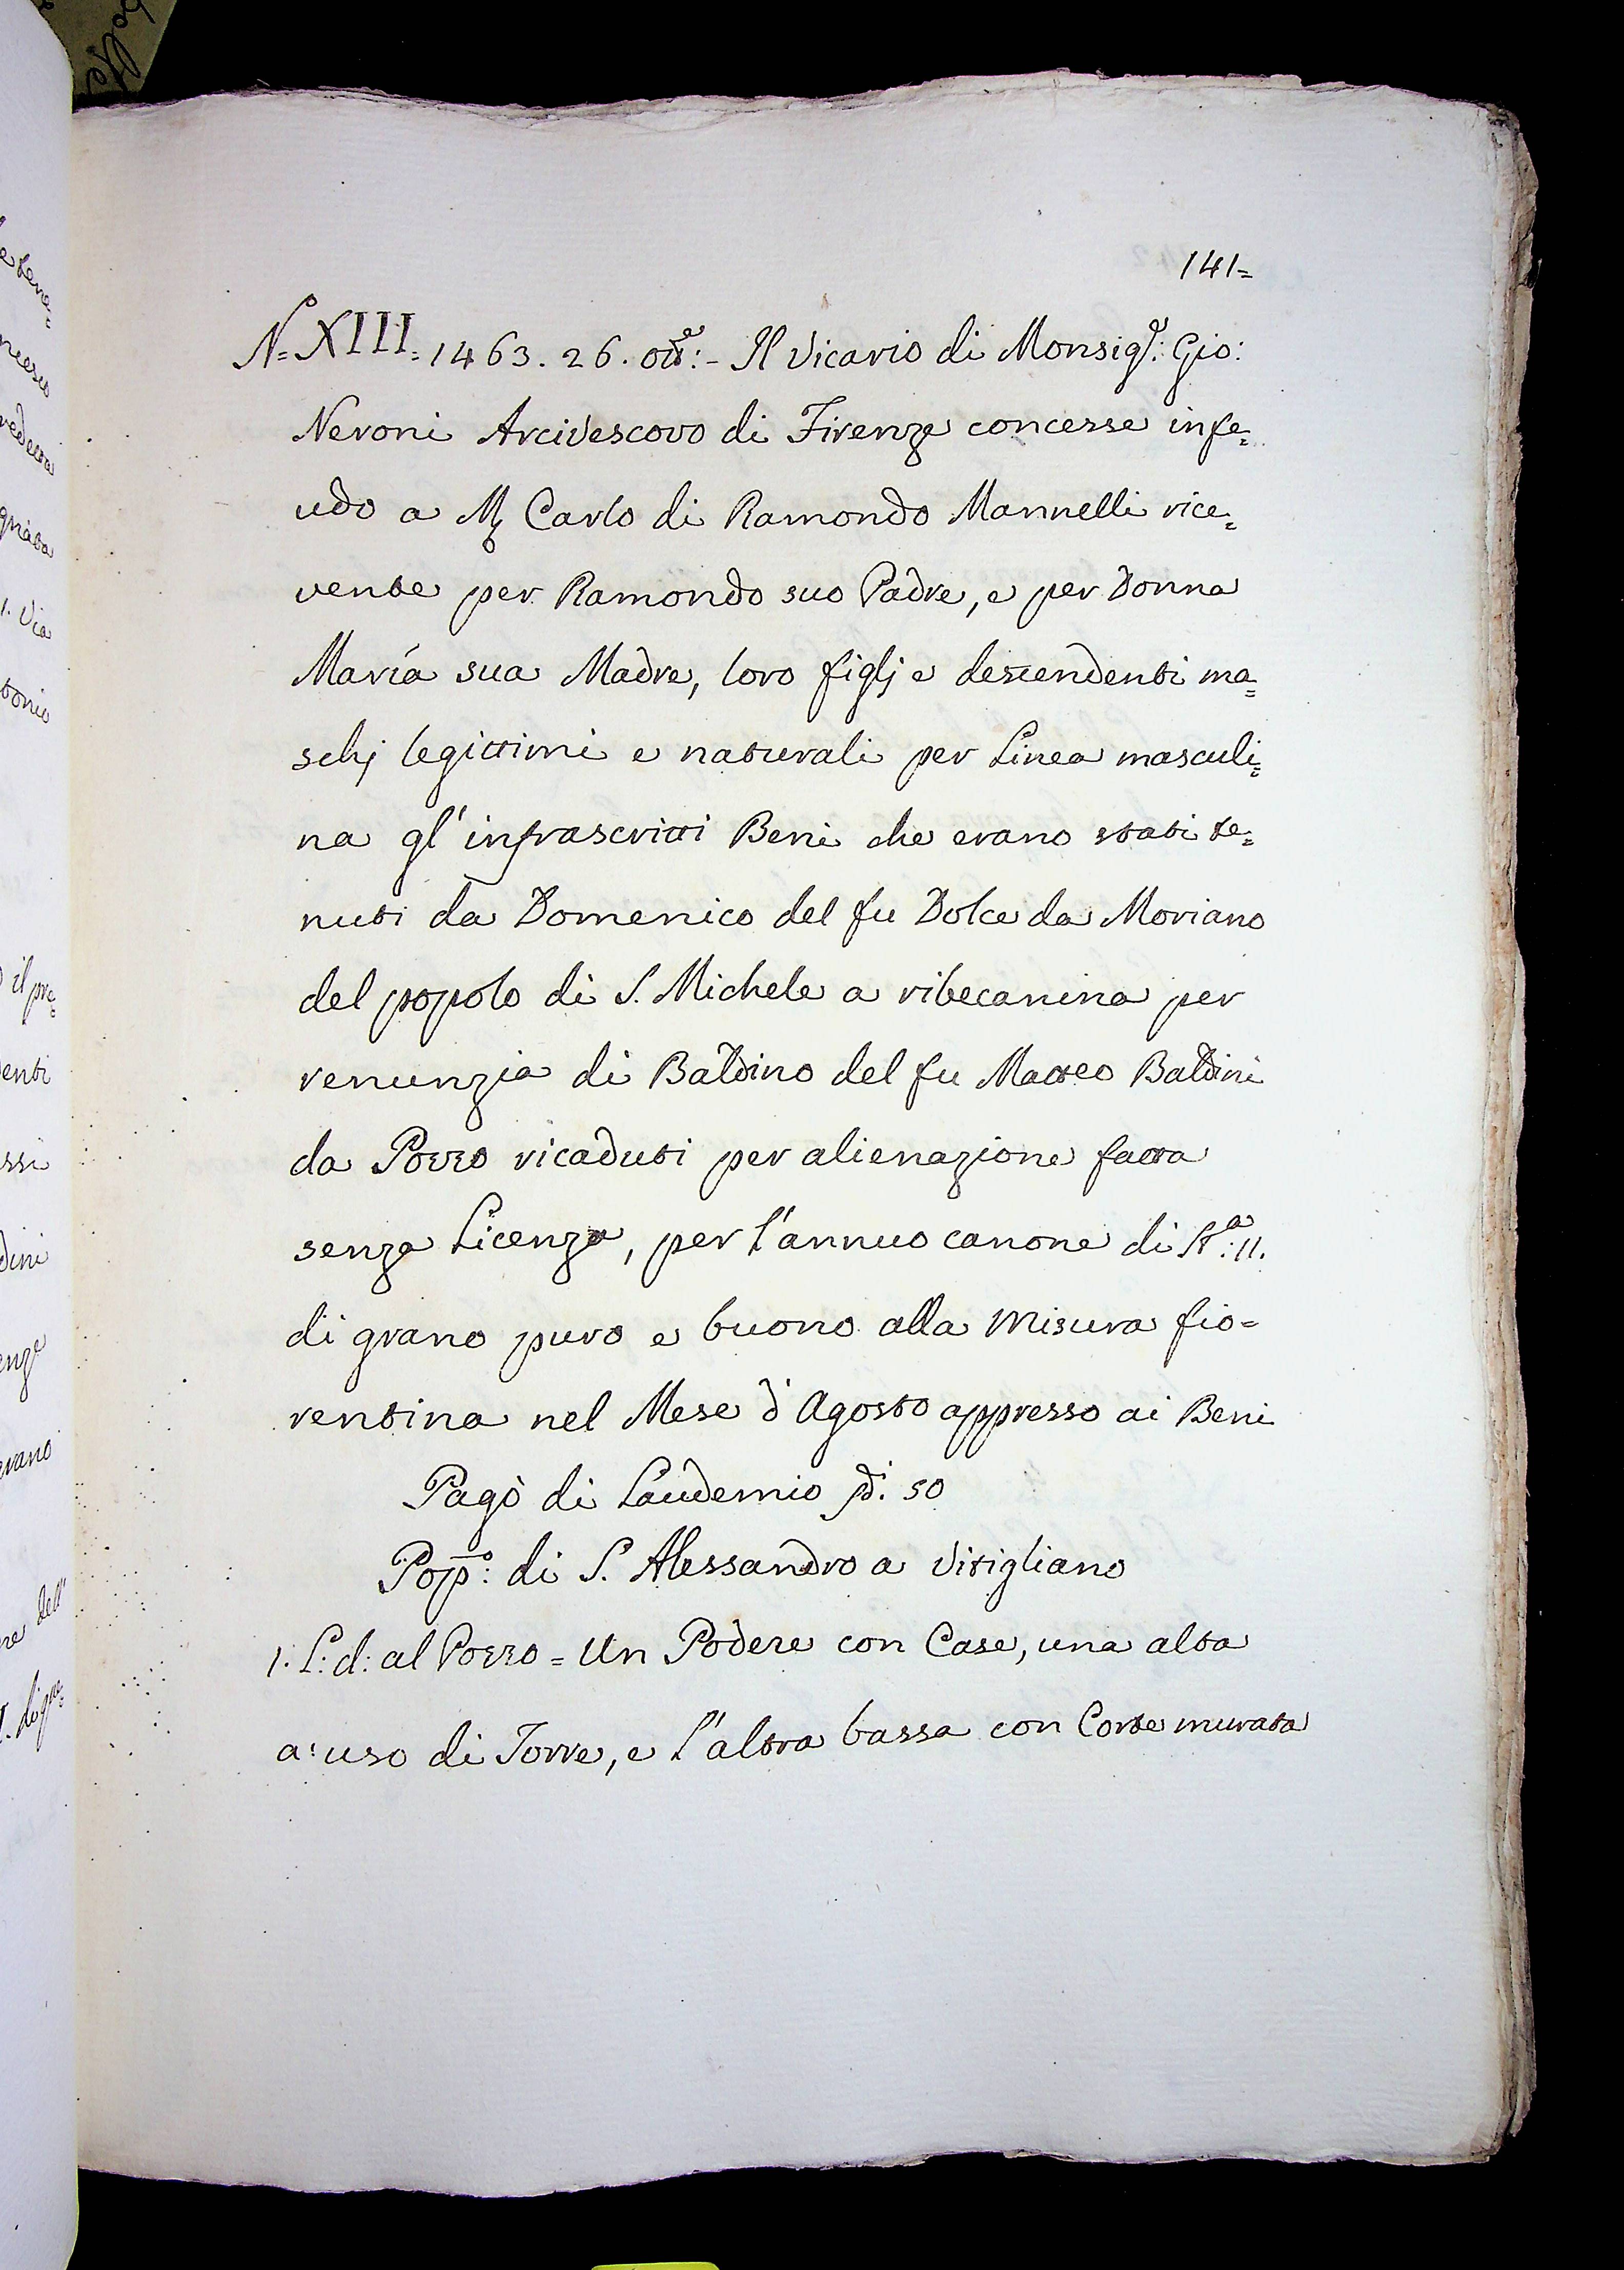 141=
N.º XIII. 1463. 26. ott.e:- Il Vicario di Monsig.r: Gio:
Neroni Arcivescovo di Firenze concesse infe=
udo a M. Carlo di Ramondo Mannelli rice=
vente per Ramondo suo Padre, e per Donna
María sua Madre, loro figlj e descendenti ma=
schj legittimi e naturali per Linea masculi=
na gl'infrascritti Beni che erano stati te=
nuti da Domenico del fu Dolce da Moriano
del popolo di S. Michele a ribecanina per
renunzia di Baldino del fu Matteo Baldini
da Pozzo ricaduti per alienazione fatta
senza Licenza, per l'annuo canone di St.a: 11.
di grano puro e buono alla misura fio=
rentina nel Mese d'Agosto appresso ai Beni
Pagò di Laudemio di. 50
Pop.o: di S. Alessandro a Vitigliano
1. L: d: al Pozzo = Un Podere con Case, una alta
a' uso di Torre, e l'altra bassa con Corte murata